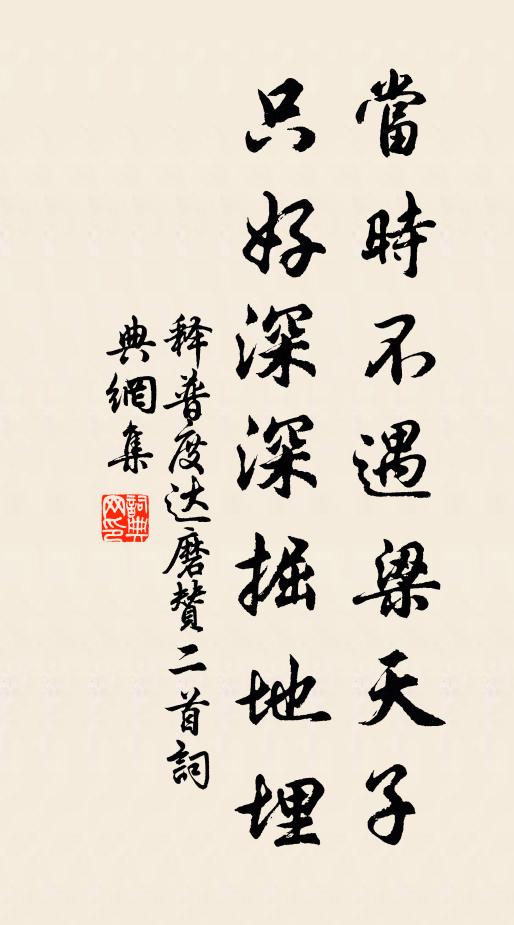 當時不遇梁天子
只好深深掘地埋
释普度达磨贊二首詞
典網集
詞典
网印